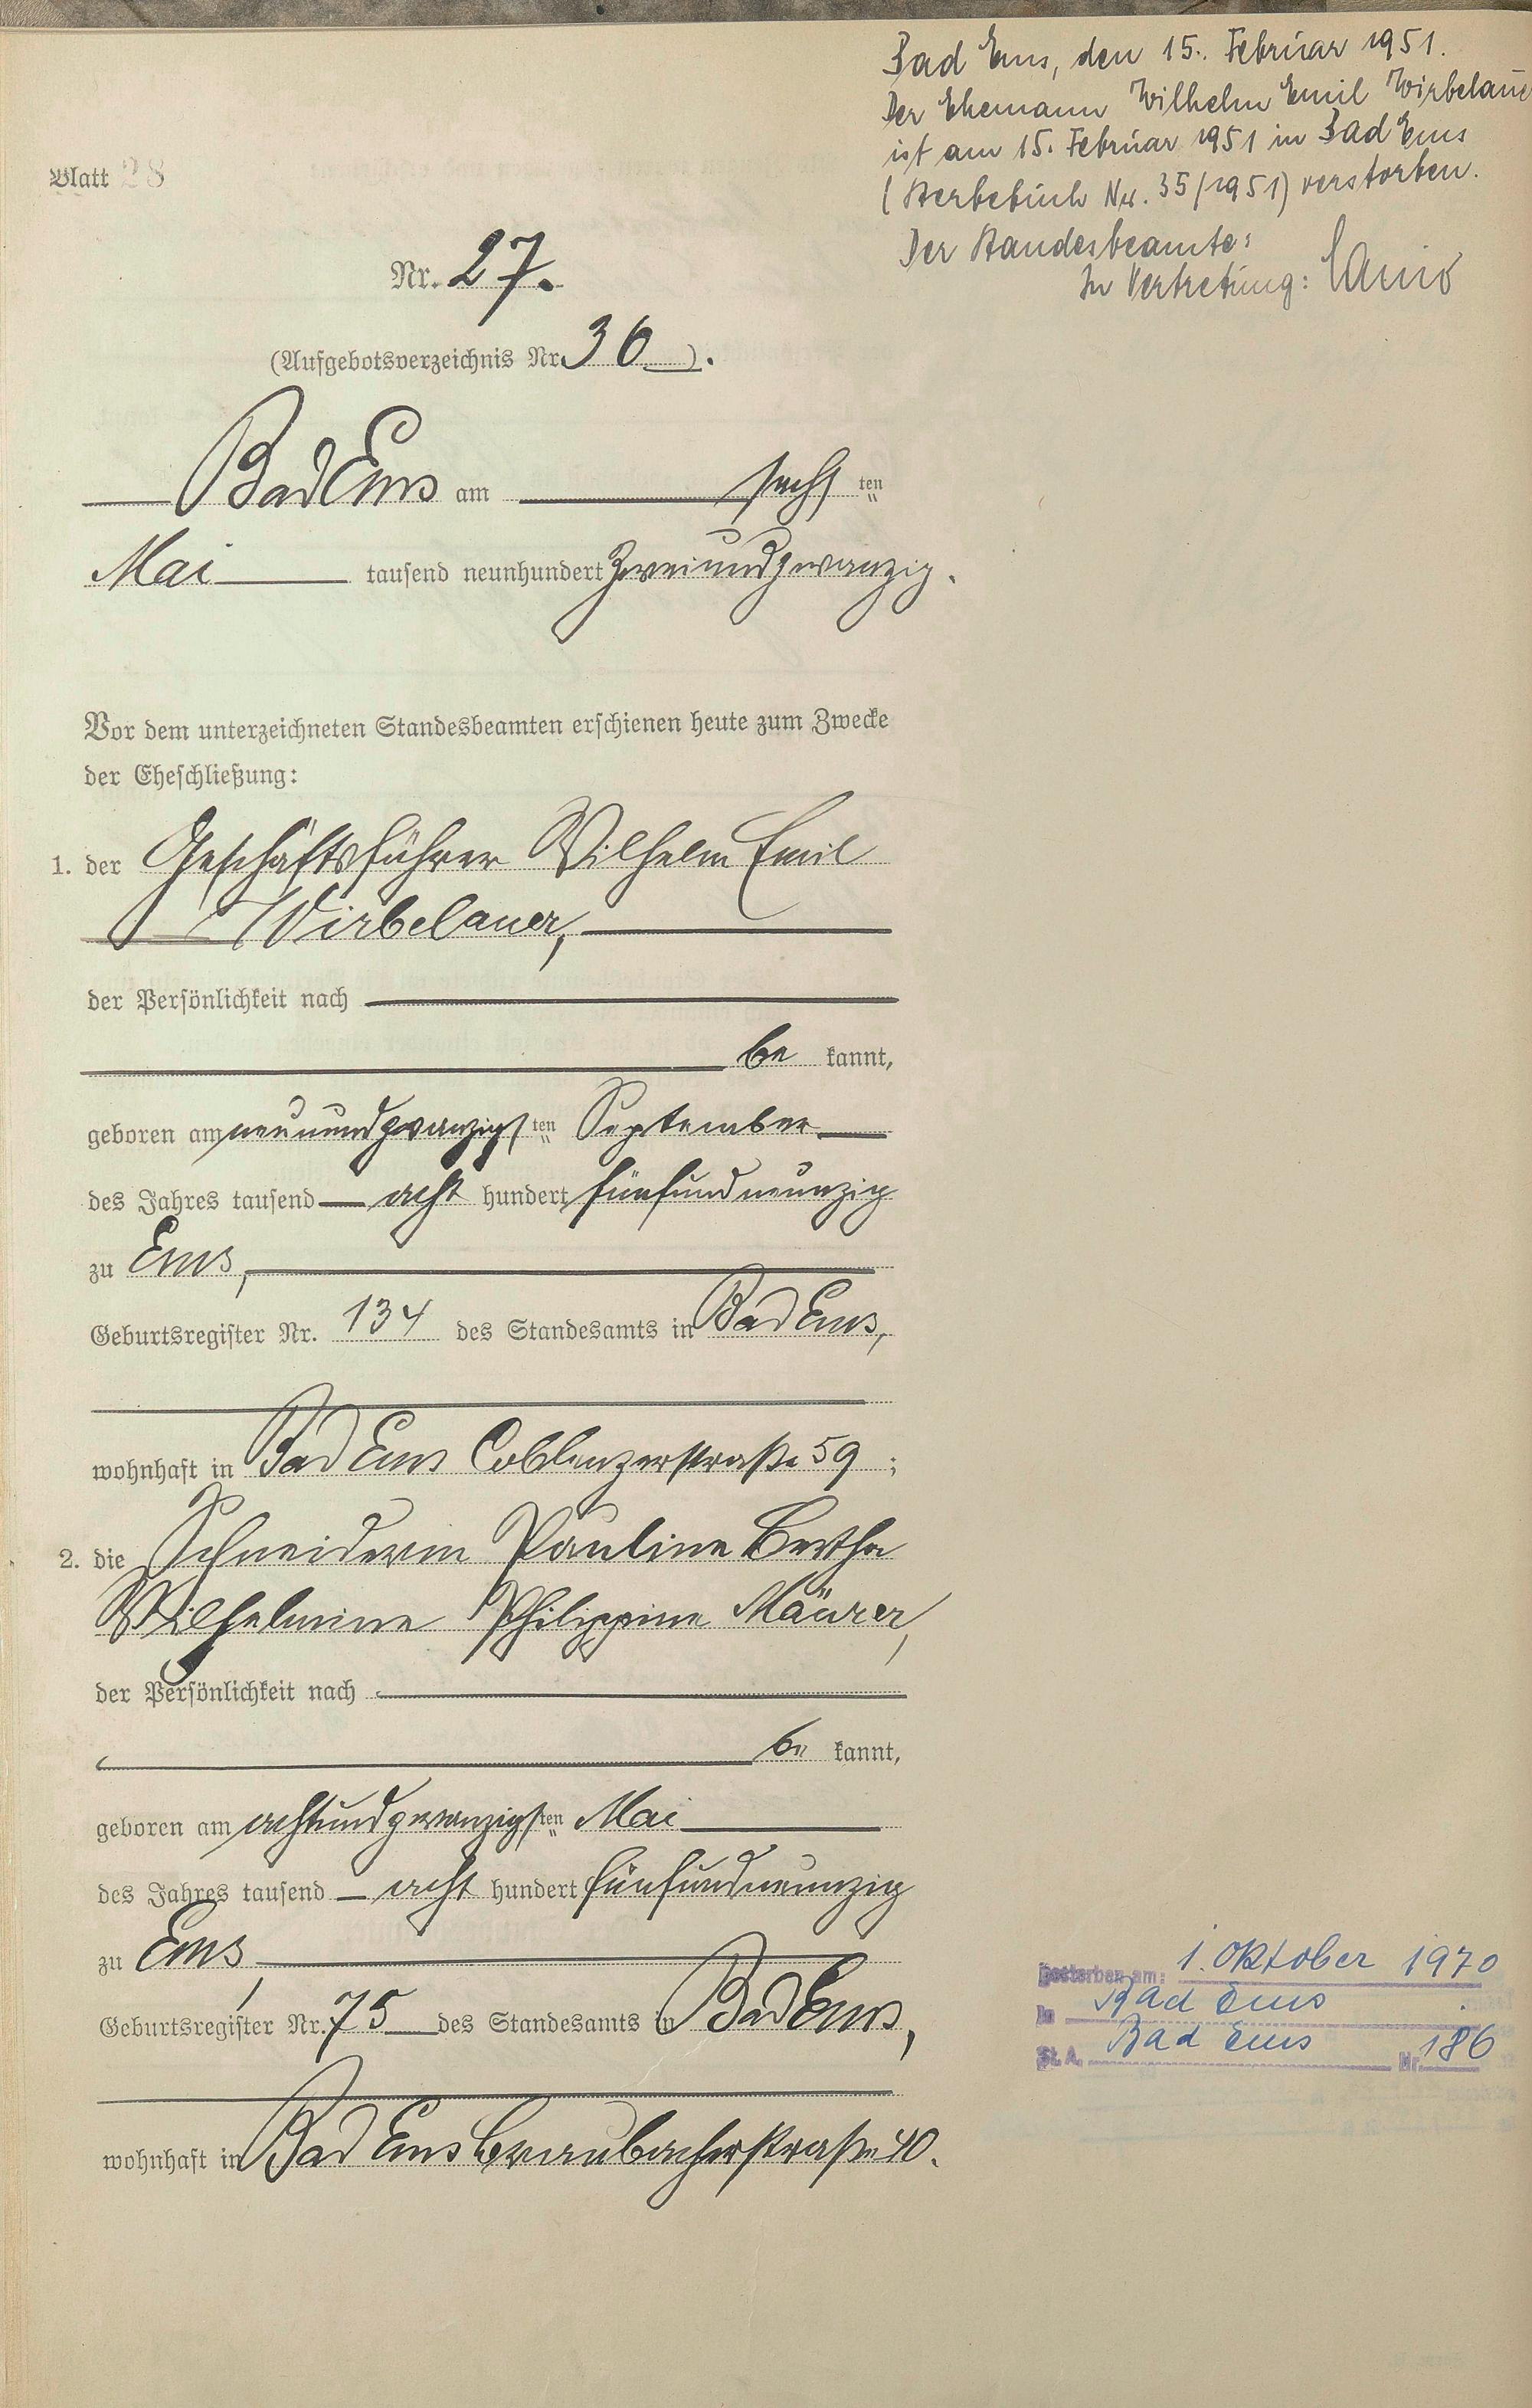 Bad Ems, den 15. Februar 1951.
Der Ehemann Wilhelm Emil Wirbelauer
ist am 15. Februar 1951 in Bad Ems
(Sterbebuch Nr. 35/1951) verstorben.
Der Standesbeamte:
In Vertretung:
Blatt 28
Nr. 27.
(Aufgebotsverzeichnis Nr. 36).
Bad Ems am sechsten
Mai tausend neunhundert zweiundzwanzig.
Vor dem unterzeichneten Standesbeamten erschienen heute zum Zwecke
der Eheschließung:
1. der Geschäftsführer Wilhelm Emil
Wirbelauer,
der Persönlichkeit nach
be kannt,
geboren am neunundzwanzigsten September
des Jahres tausend acht hundert fünfundneunzig
zu Ems,
Geburtsregister Nr. 134 des Standesamts in Bad Ems,
wohnhaft in Bad Ems Coblenzerstraße 59;
2. die Schneiderin Pauline Bertha
Wilhelmine Philippine Mäurer,
der Persönlichkeit nach
be kannt,
geboren am achtundzwanzigsten Mai
des Jahres tausend acht hundert fünfundneunzig
zu Ems,
Geburtsregister Nr. 75 des Standesamts in Bad Ems,
wohnhaft in Bad Ems Braubacherstraße 40.
Gestorben am: 1. Oktober 1970
In Bad Ems
St. A. Bad Ems Nr. 186